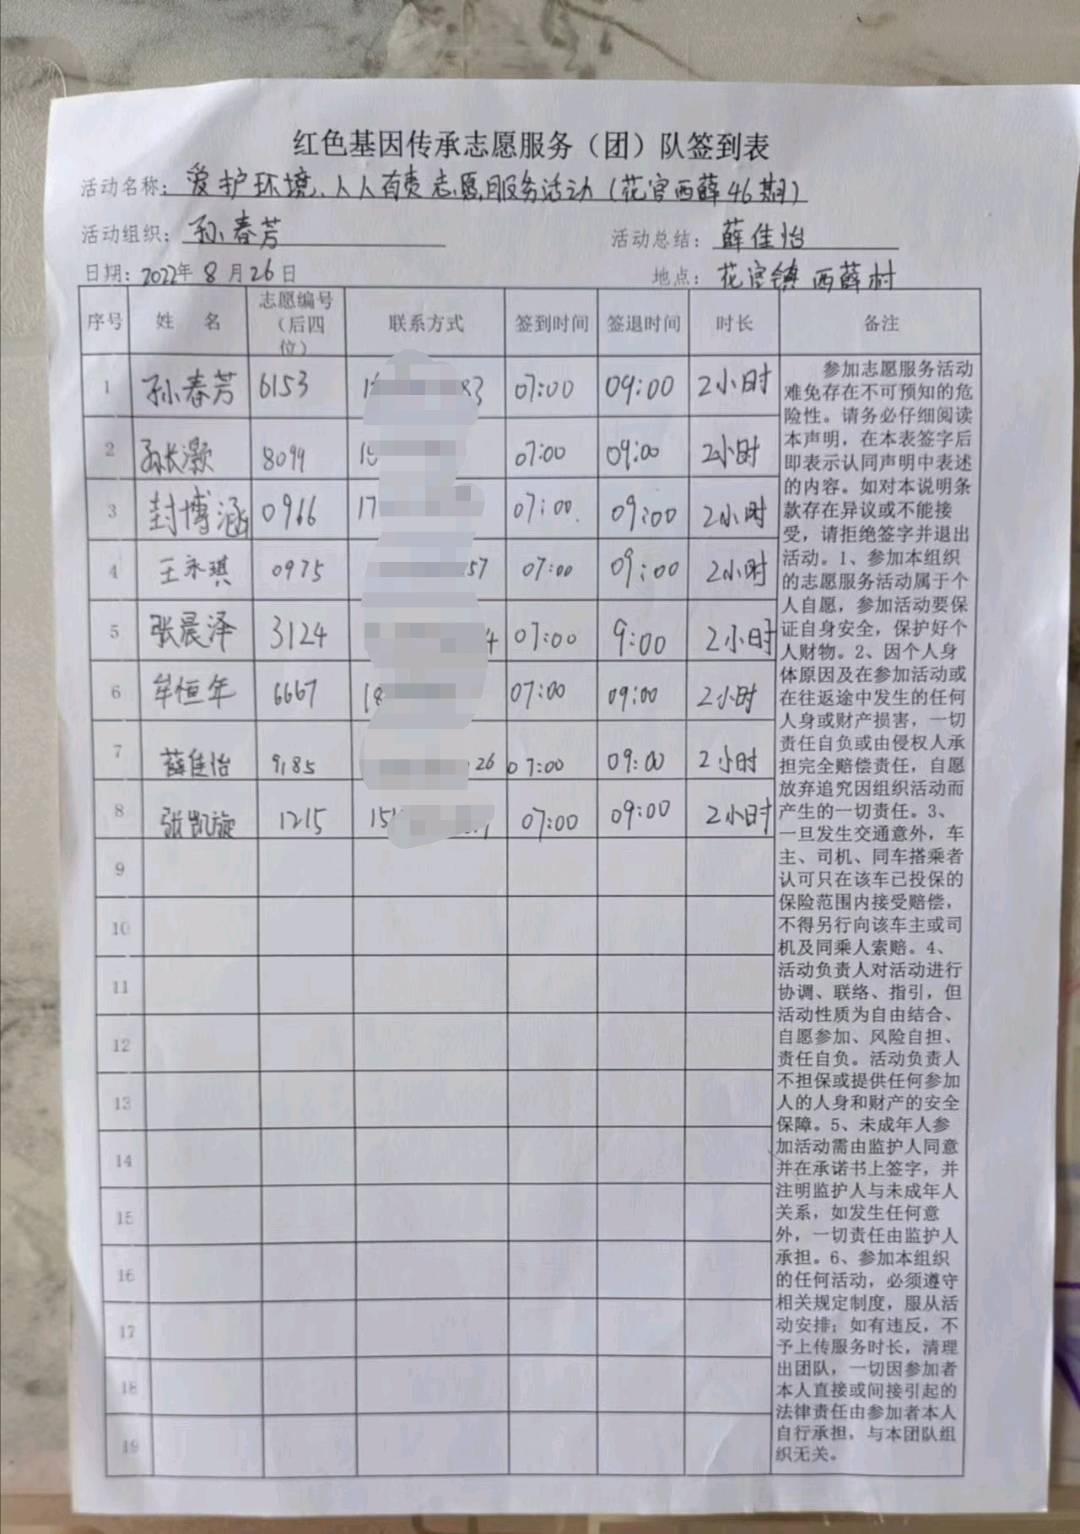 红色基因传承志愿服务（团）队签到表
活动名称：爱护环境、人人有责志愿服务活动（花官西薛46期）
活动组织：孙春芳 活动总结：薛佳怡
日期：2022年8月26日 地点：花官镇西薛村
序号 姓 名 志愿编号（后四位） 联系方式 签到时间 签退时间 时长 备注
1 孙春芳 6153 83 07:00 09:00 2小时
2 孙长灏 8099 07:00 09:00 2小时
3 封博涵 0966 17 07:00 09:00 2小时
4 王永琪 0975 57 07:00 09:00 2小时
5 张晨泽 3124 4 07:00 9:00 2小时
6 牟恒年 6667 18 07:00 09:00 2小时
7 薛佳怡 9185 26 07:00 09:00 2小时
8 张凯旋 1215 151 07:00 09:00 2小时
9
10
11
12
13
14
15
16
17
18
19
参加志愿服务活动
难免存在不可预知的危
险性。请务必仔细阅读
本声明，在本表签字后
即表示认同声明中表述
的内容。如对本说明条
款存在异议或不能接
受，请拒绝签字并退出
活动。1、参加本组织
的志愿服务活动属于个
人自愿，参加活动要保
证自身安全，保护好个
人财物。2、因个人身
体原因及在参加活动或
在往返途中发生的任何
人身或财产损害，一切
责任自负或由侵权人承
担完全赔偿责任，自愿
放弃追究因组织活动而
产生的一切责任。3、
一旦发生交通意外，车
主、司机、同车搭乘者
认可只在该车已投保的
保险范围内接受赔偿，
不得另行向该车主或司
机及同乘人索赔。4、
活动负责人对活动进行
协调、联络、指引，但
活动性质为自由结合、
自愿参加、风险自担、
责任自负。活动负责人
不担保或提供任何参加
人的人身和财产的安全
保障。5、未成年人参
加活动需由监护人同意
并在承诺书上签字，并
注明监护人与未成年人
关系，如发生任何意
外，一切责任由监护人
承担。6、参加本组织
的任何活动，必须遵守
相关规定制度，服从活
动安排；如有违反，不
予上传服务时长，清理
出团队，一切因参加者
本人直接或间接引起的
法律责任由参加者本人
自行承担，与本团队组
织无关。